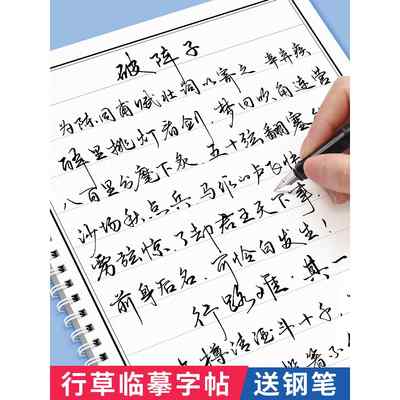 破阵子
为陈同甫赋壮词以寄之 辛弃疾
醉里挑灯看剑,梦回吹角连营
八百里分麾下炙,五十弦翻塞
沙场秋点兵。马作的卢飞快
雳弦惊。了却君王天下事.
前身后名.可怜白发生!
行路难·其一
樽清酒斗十千,
箸不
行草临摹字帖 送钢笔